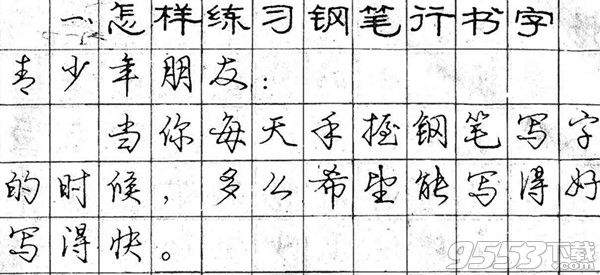 一、怎样练习钢笔行书字
青少年朋友：
当你每天手握钢笔写字
的时候，多么希望能写得好
写得快。
9553下载
.com